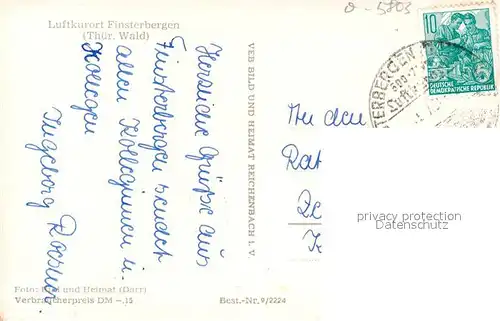 Luftkurort Finsterbergen
(Thür. Wald)
Herzliche Grüße aus
Finsterbergen sendet
allen Kolleginnen u.
Kollegen
Ingeborg
VEB BILD UND HEIMAT REICHENBACH i. V.
Foto: Bild und Heimat (Darr)
Verbraucherpreis DM -.15
Best.-Nr. 9/2224
10
DEUTSCHE
DEMOKRATISCHE REPUBLIK
An den
Rat
privacy protection
Datenschutz